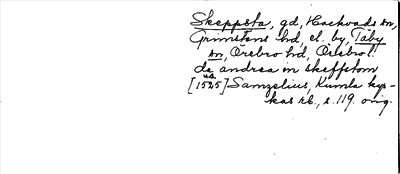 Skeppsta, gd, Hackvads sn,
Grimstens hd, el. by, Täby
sn, Örebro hd, Örebro l.
da andrea in skeffstom
[1525] Samzelius, Kumla kyr-
kas rb., s. 119. orig.